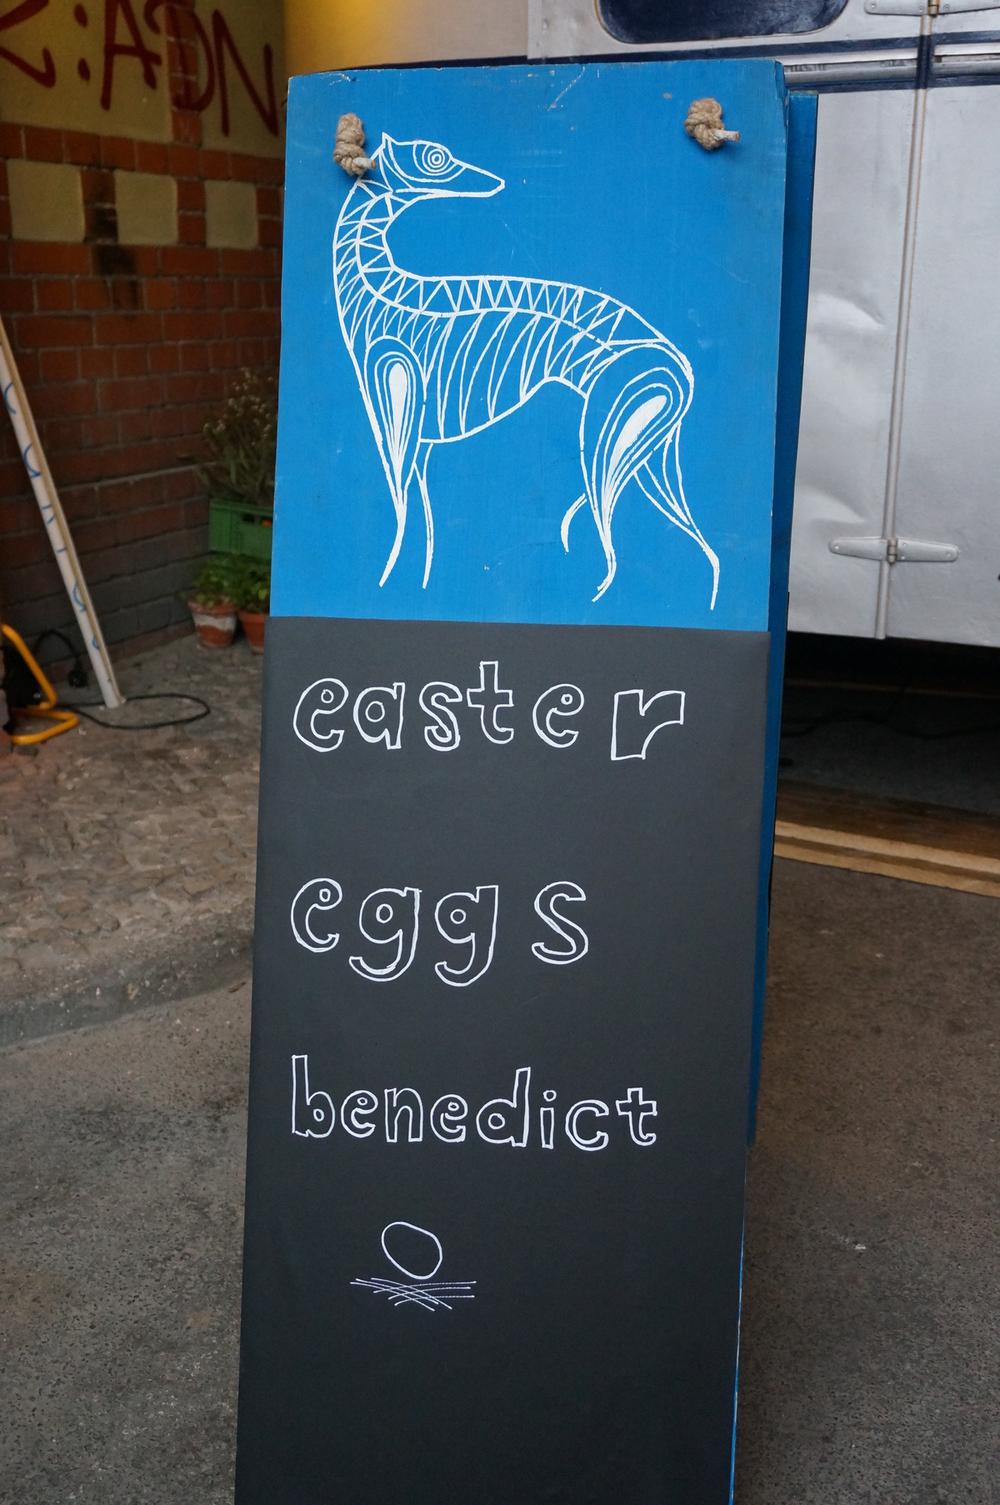 easter
eggs
benedict